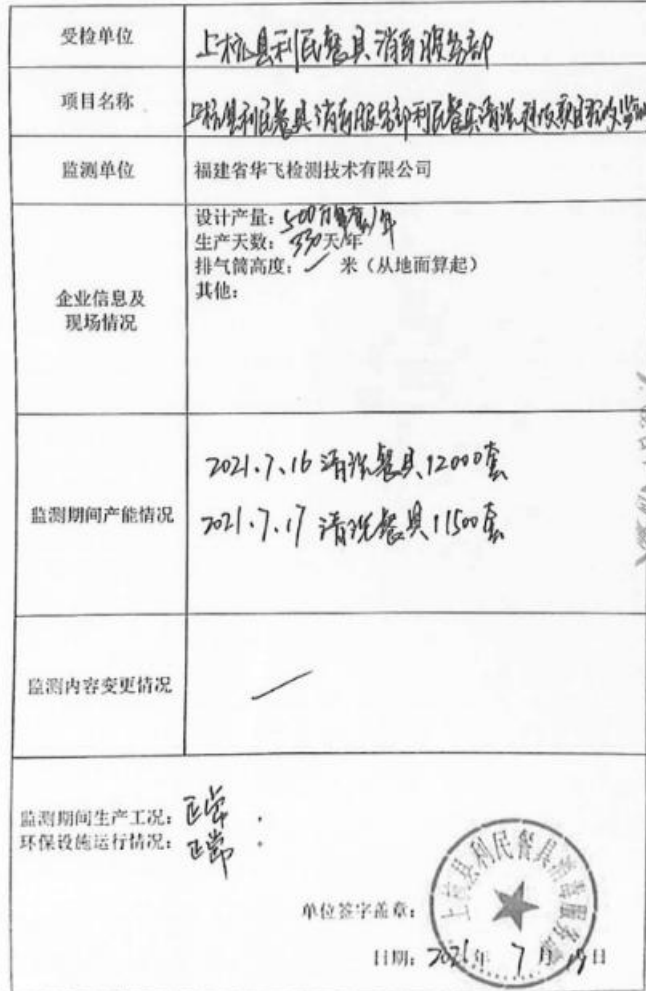 受检单位
上杭县利民餐具消毒服务部
项目名称
上杭县利民餐具消毒服务部利民餐具清洗建设项目验收监测
监测单位
福建省华飞检测技术有限公司
企业信息及
现场情况
设计产量:500万套/年
生产天数:330天/年
排气筒高度:/ 米(从地面算起)
其他:
监测期间产能情况
2021.7.16 清洗餐具12000套
2021.7.17 清洗餐具11500套
监测内容变更情况
/
监测期间生产工况:正常
环保设施运行情况:正常
单位签字盖章:
上杭县利民餐具消毒服务部
日期:2021年 7月 日